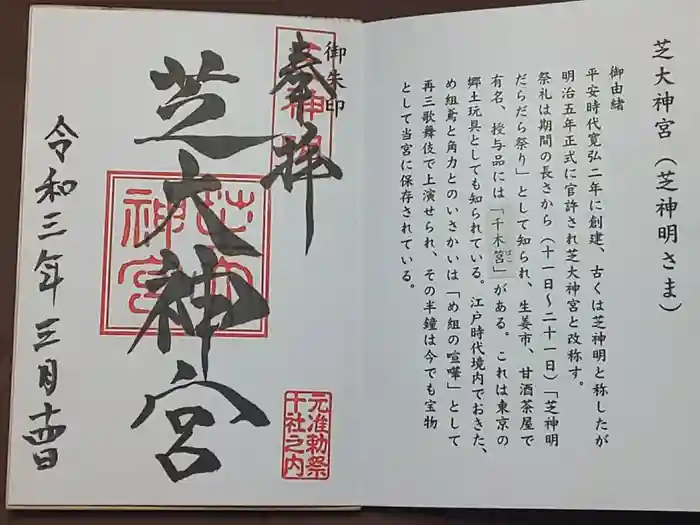 芝大神宮（芝神明さま）
御由緒
平安時代寛弘二年に創建、古くは芝神明と称したが
明治五年正式に官許され芝大神宮と改称す。
祭礼は期間の長さから（十一日～二十一日）「芝神明
だらだら祭り」として知られ、生姜市、甘酒茶屋で
有名、授与品には「千木筥」がある。これは東京の
ばこ
郷土玩具としても知られている。江戸時代境内でおきた、
め組鳶と角力とのいさかいは「め組の喧嘩」として
再三歌舞伎で上演せられ、その半鐘は今でも宝物
として当宮に保存されている。
御朱印
奉拝
芝大神宮
芝大神宮
元准勅祭
十社之内
令和三年三月十四日